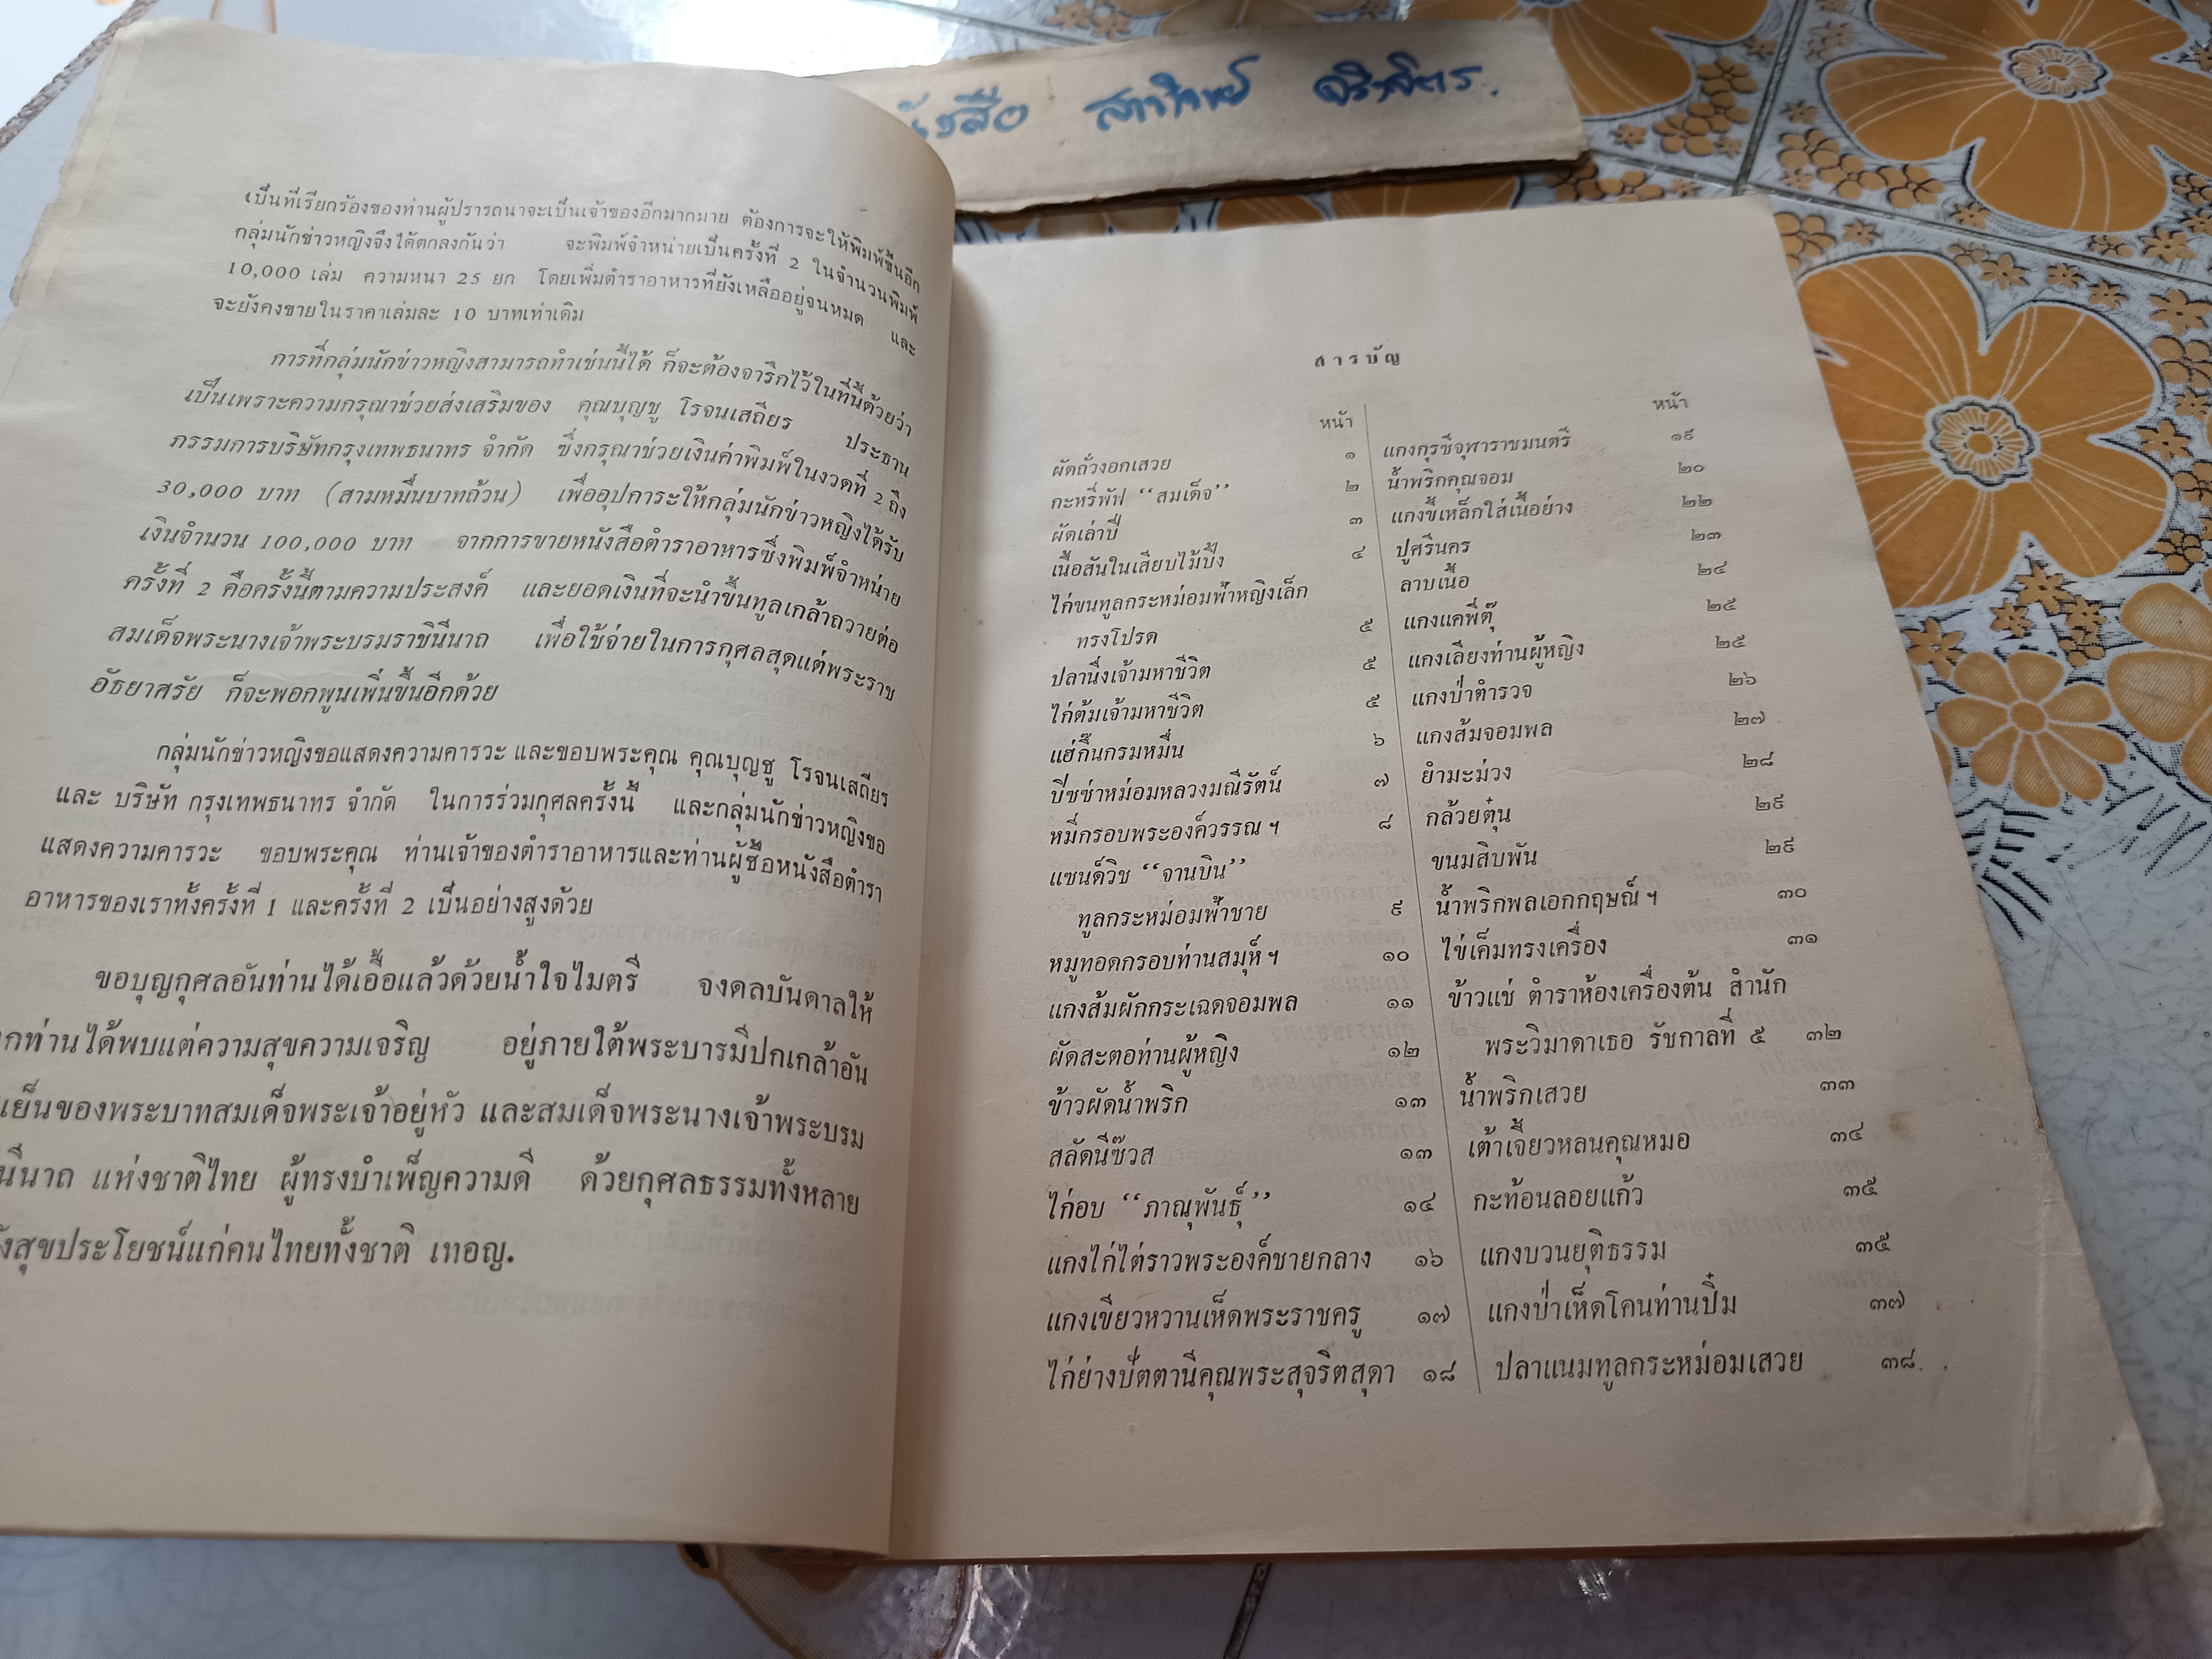 สภาวิทย์
เป็นที่เรียกร้องของท่านผู้ปรารถนาจะเป็นเจ้าของอีกมากมาย ต้องการจะให้พิมพ์ขึ้นอีก
กลุ่มนักข่าวหญิงจึงได้ตกลงกันว่า จะพิมพ์จำหน่ายเป็นครั้งที่ 2 ในจำนวนพิมพ์
10,000 เล่ม ความหนา 25 ยก โดยเพิ่มตำราอาหารที่ยังเหลืออยู่จนหมด และ
จะยังคงขายในราคาเล่มละ 10 บาทเท่าเดิม
การที่กลุ่มนักข่าวหญิงสามารถทำเช่นนี้ได้ ก็จะต้องจารึกไว้ในที่นี้ด้วยว่า
เป็นเพราะความกรุณาช่วยส่งเสริมของ คุณบุญชู โรจนเสถียร ประธาน
กรรมการบริษัทกรุงเทพธนาทร จำกัด ซึ่งกรุณาช่วยเงินค่าพิมพ์ในงวดที่ 2 ถึง
30,000 บาท (สามหมื่นบาทถ้วน) เพื่ออุปการะให้กลุ่มนักข่าวหญิงได้รับ
เงินจำนวน 100,000 บาท จากการขายหนังสือตำราอาหารซึ่งพิมพ์จำหน่าย
ครั้งที่ 2 คือครั้งนี้ตามความประสงค์ และยอดเงินที่จะนำขึ้นทูลเกล้าถวายต่อ
สมเด็จพระนางเจ้าพระบรมราชินีนาถ เพื่อใช้จ่ายในการกุศลสุดแต่พระราช
อัธยาศรัย ก็จะพอกพูนเพิ่นขึ้นอีกด้วย
กลุ่มนักข่าวหญิงขอแสดงความคารวะ และขอบพระคุณ คุณบุญชู โรจนเสถียร
และ บริษัท กรุงเทพธนาทร จำกัด ในการร่วมกุศลครั้งนี้ และกลุ่มนักข่าวหญิงขอ
แสดงความคารวะ ขอบพระคุณ ท่านเจ้าของตำราอาหารและท่านผู้ซื้อหนังสือตำรา
อาหารของเราทั้งครั้งที่ 1 และครั้งที่ 2 เป็นอย่างสูงด้วย
ขอบุญกุศลอันท่านได้เอื้อแล้วด้วยน้ำใจไมตรี จงดลบันดาลให้
กท่านได้พบแต่ความสุขความเจริญ อยู่ภายใต้พระบารมีปกเกล้าอัน
เย็นของพระบาทสมเด็จพระเจ้าอยู่หัว และสมเด็จพระนางเจ้าพระบรม
นีนาถ แห่งชาติไทย ผู้ทรงบำเพ็ญความดี ด้วยกุศลธรรมทั้งหลาย
งสุขประโยชน์แก่คนไทยทั้งชาติ เทอญ.
สารบัญ
หน้า
ผัดถั่วงอกเสวย ๑
กะหรี่พัฟ “สมเด็จ” ๒
ผัดเล่าปี่ ๓
เนื้อสันในเสียบไม้ปิ้ง ๔
ไก่ขนทูลกระหม่อมฟ้าหญิงเล็ก
ทรงโปรด ๕
ปลานึ่งเจ้ามหาชีวิต ๕
ไก่ต้มเจ้ามหาชีวิต ๕
แฮ่กึ๊นกรมหมื่น ๖
ปีซซ่าหม่อมหลวงมณีรัตน์ ๗
หมี่กรอบพระองค์วรรณ ฯ ๘
แซนด์วิช “จานบิน”
ทูลกระหม่อมฟ้าชาย ๙
หมูทอดกรอบท่านสมุห์ ฯ ๑๐
แกงส้มผักกระเฉดจอมพล ๑๑
ผัดสะตอท่านผู้หญิง ๑๒
ข้าวผัดน้ำพริก ๑๓
สลัดนีซ๊วส ๑๓
ไก่อบ “ภาณุพันธุ์” ๑๔
แกงไก่ไต่ราวพระองค์ชายกลาง ๑๖
แกงเขียวหวานเห็ดพระราชครู ๑๗
ไก่ย่างปัตตานีคุณพระสุจริตสุดา ๑๘
หน้า
แกงกุรุซี่จุฬาราชมนตรี ๑๙
น้ำพริกคุณจอม ๒๐
แกงขี้เหล็กใส่เนื้อย่าง ๒๒
ปูศรีนคร ๒๓
ลาบเนื้อ ๒๔
แกงแคพี่ตุ๊ ๒๕
แกงเลียงท่านผู้หญิง ๒๕
แกงป่าตำรวจ ๒๖
แกงส้มจอมพล ๒๗
ยำมะม่วง ๒๘
กล้วยตุ๋น ๒๙
ขนมสิบพัน ๒๙
น้ำพริกพลเอกกฤษณ์ ฯ ๓๐
ไข่เค็มทรงเครื่อง ๓๑
ข้าวแช่ ตำราห้องเครื่องต้น สำนัก
พระวิมาดาเธอ รัชกาลที่ ๕ ๓๒
น้ำพริกเสวย ๓๓
เต้าเจี้ยวหลนคุณหมอ ๓๔
กะท้อนลอยแก้ว ๓๕
แกงบวนยุติธรรม ๓๕
แกงป่าเห็ดโคนท่านปิ๋ม ๓๗
ปลาแนมทูลกระหม่อมเสวย ๓๘